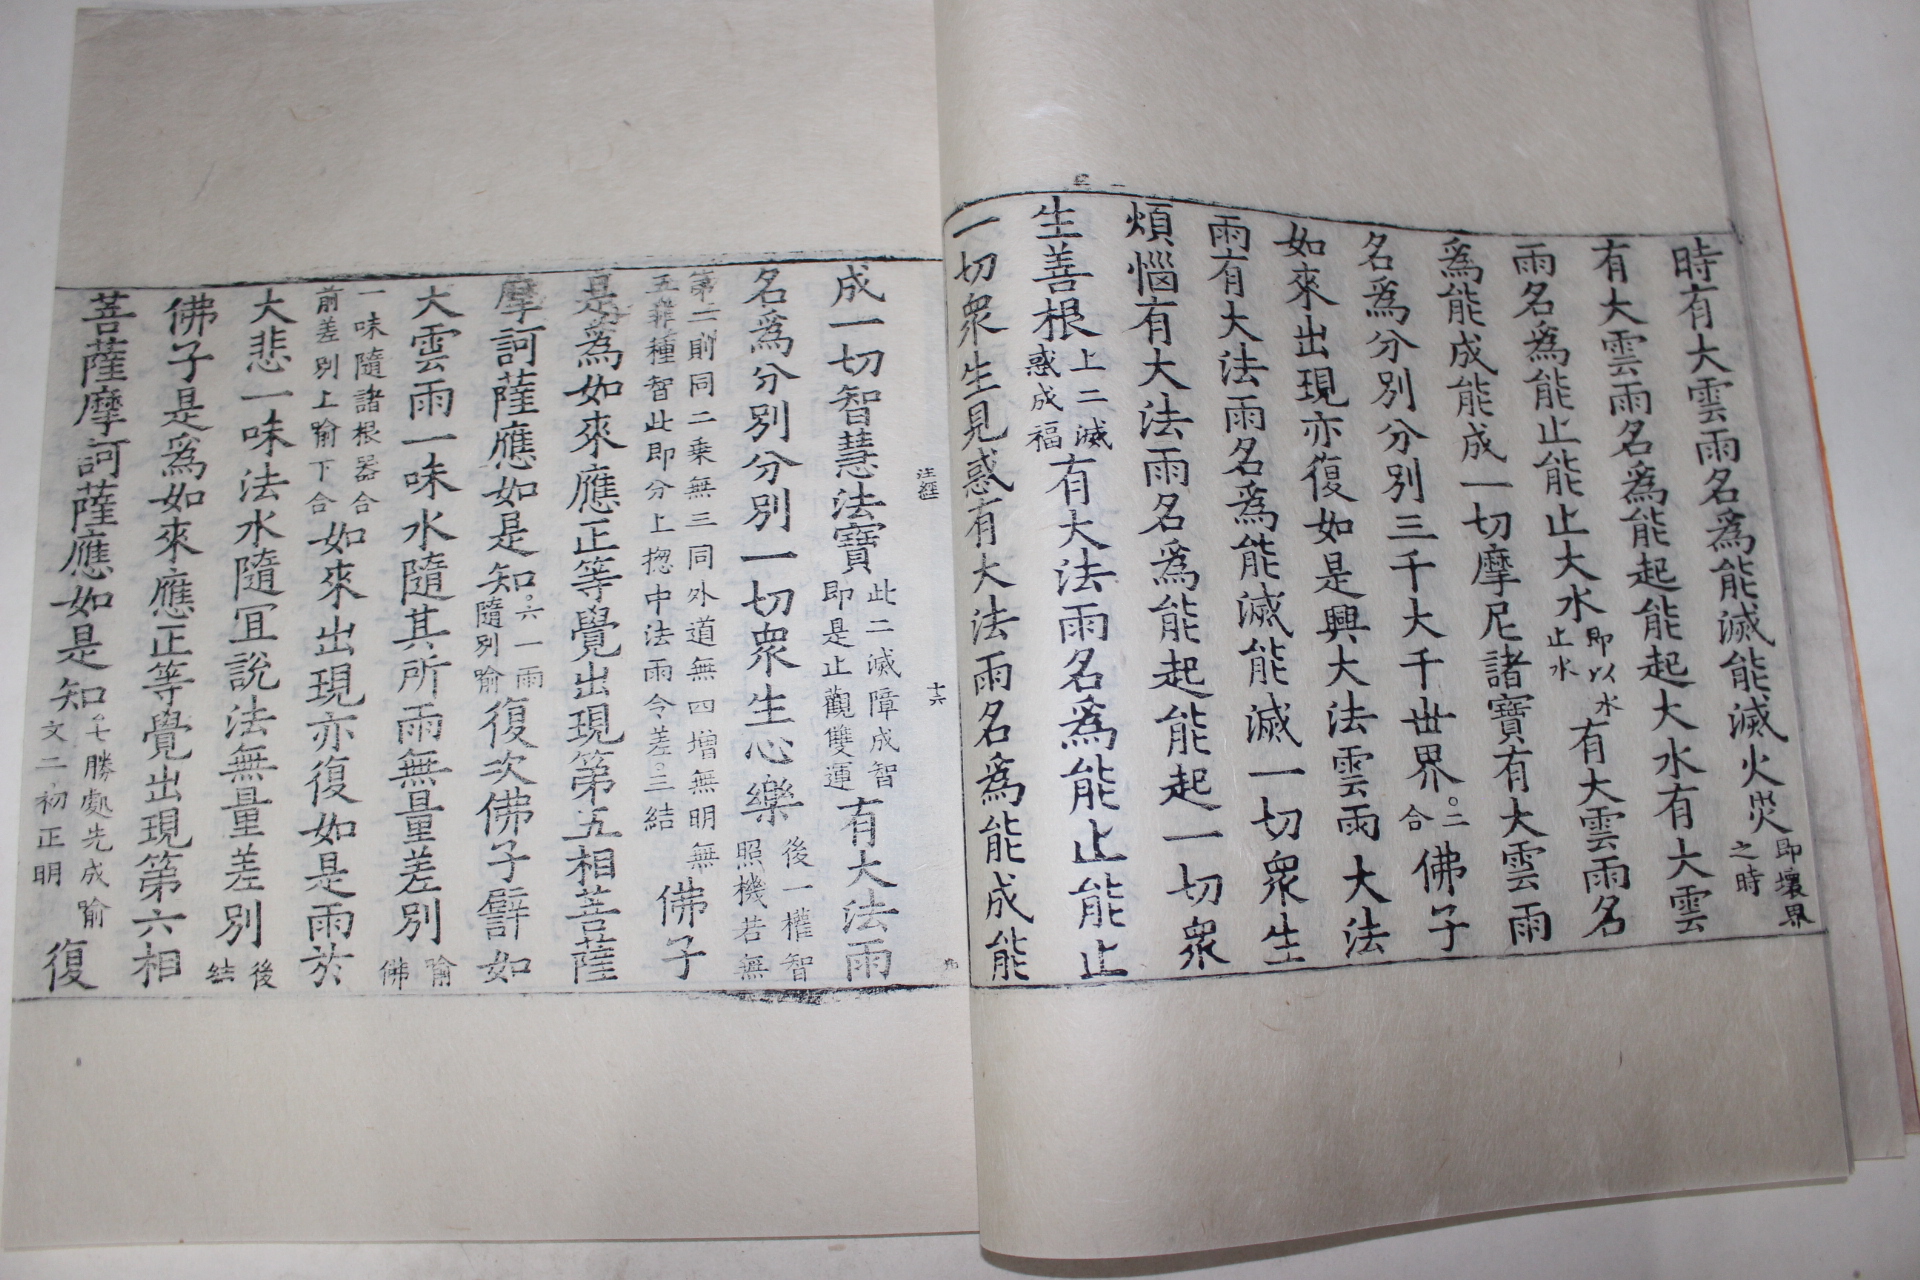 時有大雲雨名爲能滅能滅火災即壞界之時
有大雲雨名爲能起能起大水有大雲
雨名爲能止能止大水即以水止水有大雲雨名
爲能成能成一切摩尼諸寶有大雲雨
名爲分別分別三千大千世界。二合佛子
如來出現亦復如是興大法雲雨大法
雨有大法雨名爲能滅能滅一切衆生
煩惱有大法雨名爲能起能起一切衆
生善根上二滅惑成福有大法雨名爲能止能止
一切衆生見惑有大法雨名爲能成能
注經 十六
成一切智慧法寶此二滅障成智即是止觀雙運有大法雨
名爲分別分別一切衆生心樂後一權智照機若無
第二則同二乗無三同外道無四增無明無五非種智此即分上揔中法雨今差。三結佛子
是爲如來應正等覺出現第五相菩薩
摩訶薩應如是知。六一雨隨別喻復次佛子譬如
大雲雨一味水隨其所雨無量差別喻佛
一味隨諸根器合前差別上喻下合如來出現亦復如是雨於
大悲一味法水隨宜說法無量差別後結
佛子是爲如來應正等覺出現第六相
菩薩摩訶薩應如是知。七勝處先成喻文二初正明復